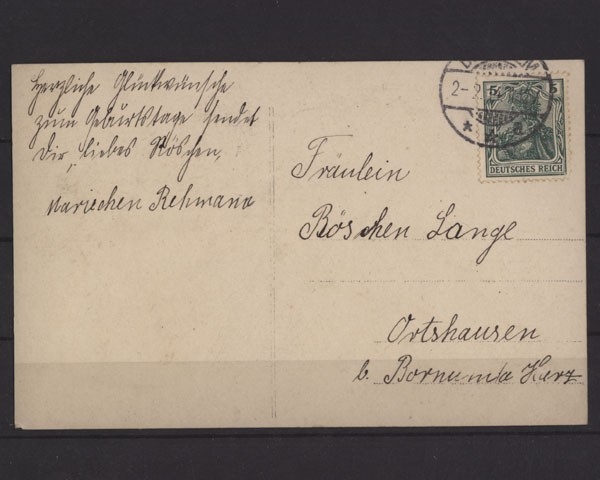 Herzliche Glückwünsche
zum Geburtstage sendet
Dir, liebes Röschen,
Mariechen Rehmann
Fräulein
Röschen Lange
Ortshausen
b. Bornum a/ Harz
5 5
DEUTSCHES REICH
2-